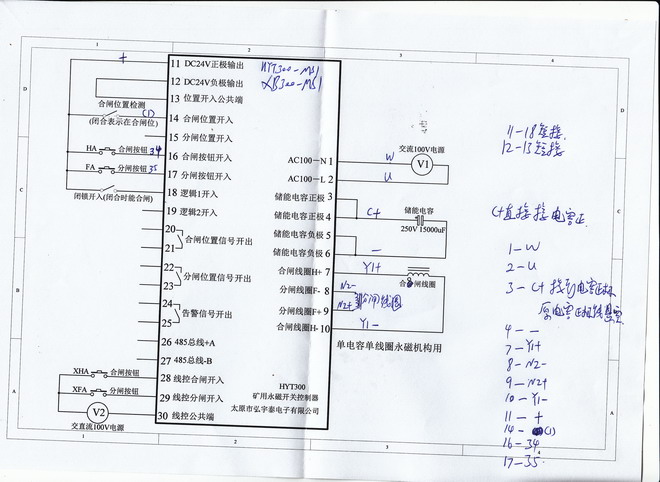 1
2
3
4
D
C
B
A
+
合闸位置检测
(1)
(闭合表示在合闸位)
HA
合闸按钮
34
FA
分闸按钮
35
闭锁开入(闭合时能合闸)
XHA
合闸按钮
XFA
分闸按钮
V2
交直流100V电源
11 DC24V正极输出
HYT300-MS1
12 DC24V负极输出
XB300-MS1
13 位置开入公共端
14 合闸位置开入
15 分闸位置开入
16 合闸按钮开入
17 分闸按钮开入
18 逻辑1开入
19 逻辑2开入
20
21
合闸位置信号开出
22
23
分闸位置信号开出
24
25
告警信号开出
26 485总线+A
27 485总线-B
28 线控合闸开入
29 线控分闸开入
30 线控公共端
AC100-N 1
AC100-L 2
储能电容正极 3
储能电容正极 4
储能电容负极 5
储能电容负极 6
合闸线圈H+ 7
分闸线圈F- 8
分闸线圈F+ 9
合闸线圈H- 10
HYT300
矿用永磁开关控制器
太原市弘宇泰电子有限公司
W
U
交流100V电源
V1
C+
储能电容
250V 15000uF
-
Y1+
合闸线圈
N2-
N2+
分闸线圈
Y1-
单电容单线圈永磁机构用
11-18短接
12-13短接
C+直接接电容正
1-W
2-U
3-C+接到电容正极
原电容正极线悬空
4- -
7-Y1+
8-N2-
9-N2+
10-Y1-
11-+
14-(1)
16-34
17-35